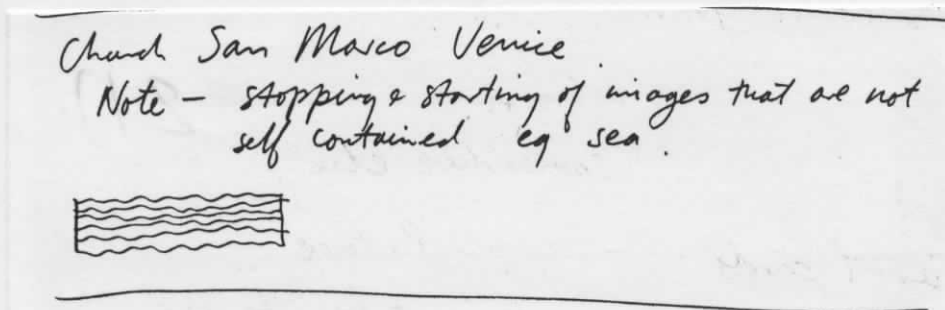 Church San Marco Venice
Note - stopping & starting of images that are not
self contained eg sea.